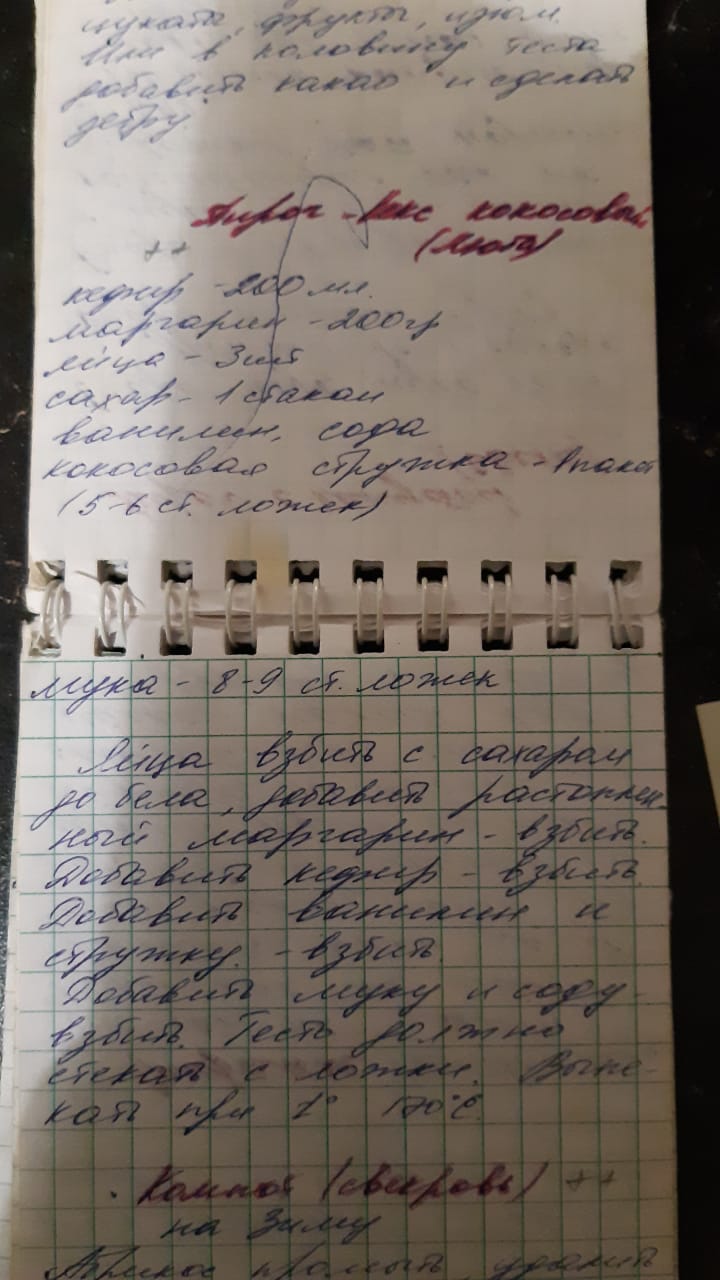 цуката, фрукты, изюм.
Или в половину теста
добавить какао и сделать
зебру.
Пирог - Кекс кокосовый
(Люта)
++
кефир - 200 мл.
маргарин - 200 гр
яйца - 3 шт
сахар - 1 стакан
ванилин, сода
кокосовая стружка - 1 пакет
(5-6 ст. ложек)
мука - 8-9 ст. ложек
Яйца взбить с сахаром
до бела, добавить растоплен-
ный маргарин - взбить.
Добавить кефир - взбить.
Добавить ванилин и
стружку. - взбить.
Добавить муку и соду -
взбить. Тесто должно
стекать с ложки. Выпе-
кать при t° 170°C.
Компот (свекровь) ++
на Зиму
Абрикос промыть, удалить